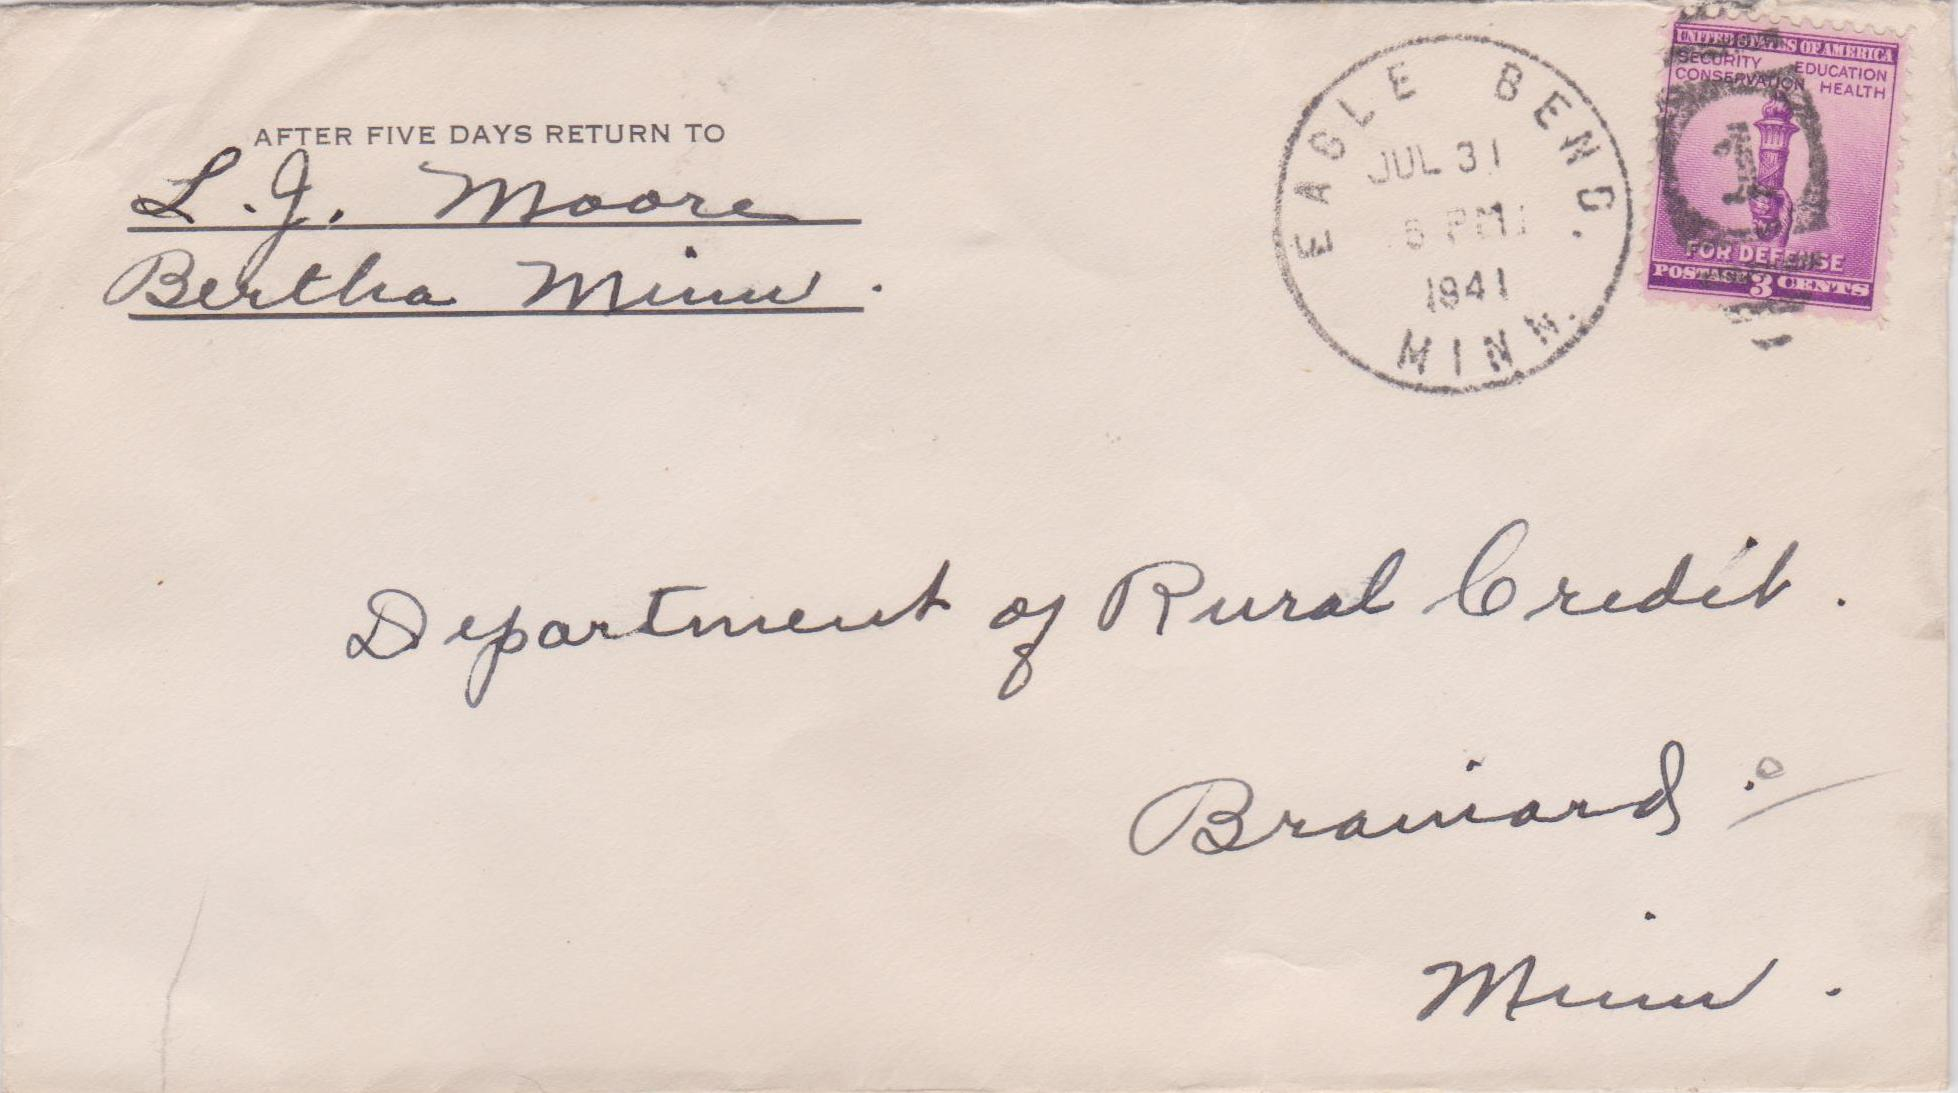 AFTER FIVE DAYS RETURN TO
L. J. Moore
Bertha Minn.
EAGLE BEND.
JUL 31
PM
1941
MINN.
UNITED STATES OF AMERICA
SECURITY EDUCATION
CONSERVATION HEALTH
1
FOR DEFENSE
POSTAGE 3 CENTS
Department of Rural Credit.
Brainard.
Minn.